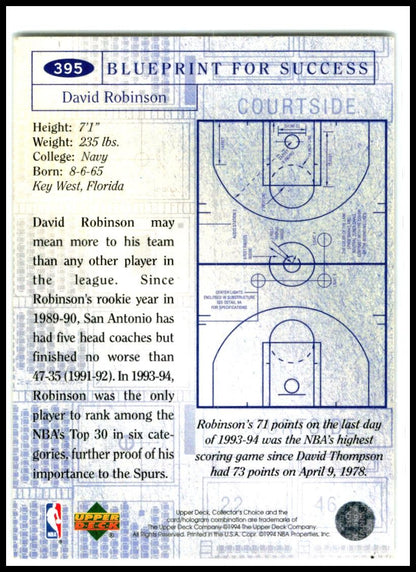 395 BLUEPRINT FOR SUCCESS
David Robinson
COURTSIDE
Height: 7'1"
Weight: 235 lbs.
College: Navy
Born: 8-6-65
Key West, Florida
David Robinson may
mean more to his team
than any other player in
the league. Since
Robinson's rookie year in
1989-90, San Antonio has
had five head coaches but
finished no worse than
47-35 (1991-92). In 1993-94,
Robinson was the only
player to rank among the
NBA's Top 30 in six cate-
gories, further proof of his
importance to the Spurs.
CENTER LIGHTS
ENCLOSED IN SUBSTRUCTURE
SEE DETAIL 4A
FOR SPECIFICATIONS
Robinson's 71 points on the last day
of 1993-94 was the NBA's highest
scoring game since David Thompson
had 73 points on April 9, 1978.
22
46
NBA
UPPER
DECK
Upper Deck, Collector's Choice and the
card/hologram combination are trademarks of
The Upper Deck Company. ©1994 The Upper Deck Company.
All Rights Reserved. Printed in the U.S.A. Copr. ©1994 NBA Properties, Inc.